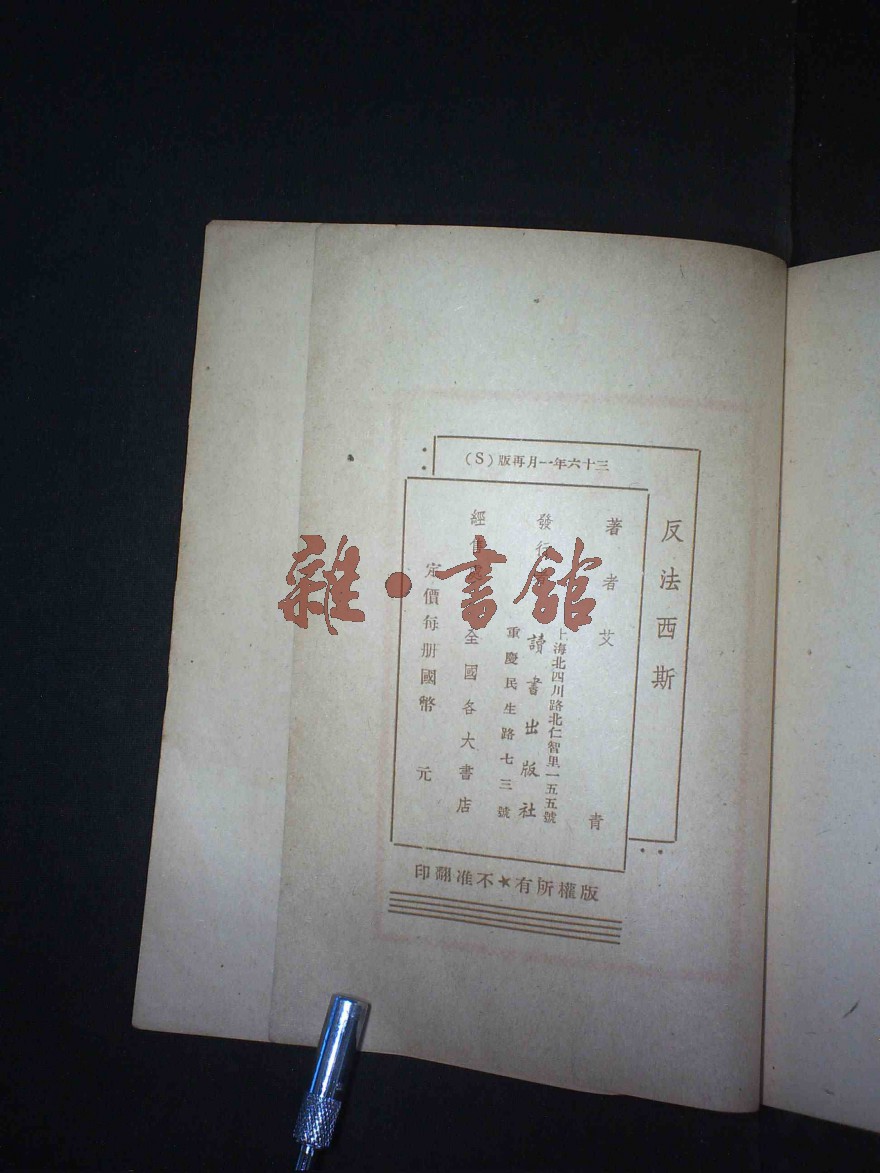 三十六年一月再版（S）
反法西斯
著者 艾青
發行
上海北四川路北仁智里一五五號
讀書出版社
重慶民生路七三號
經售 全國各大書店
定價每册國幣 元
版權所有★不准翻印
雜·書館